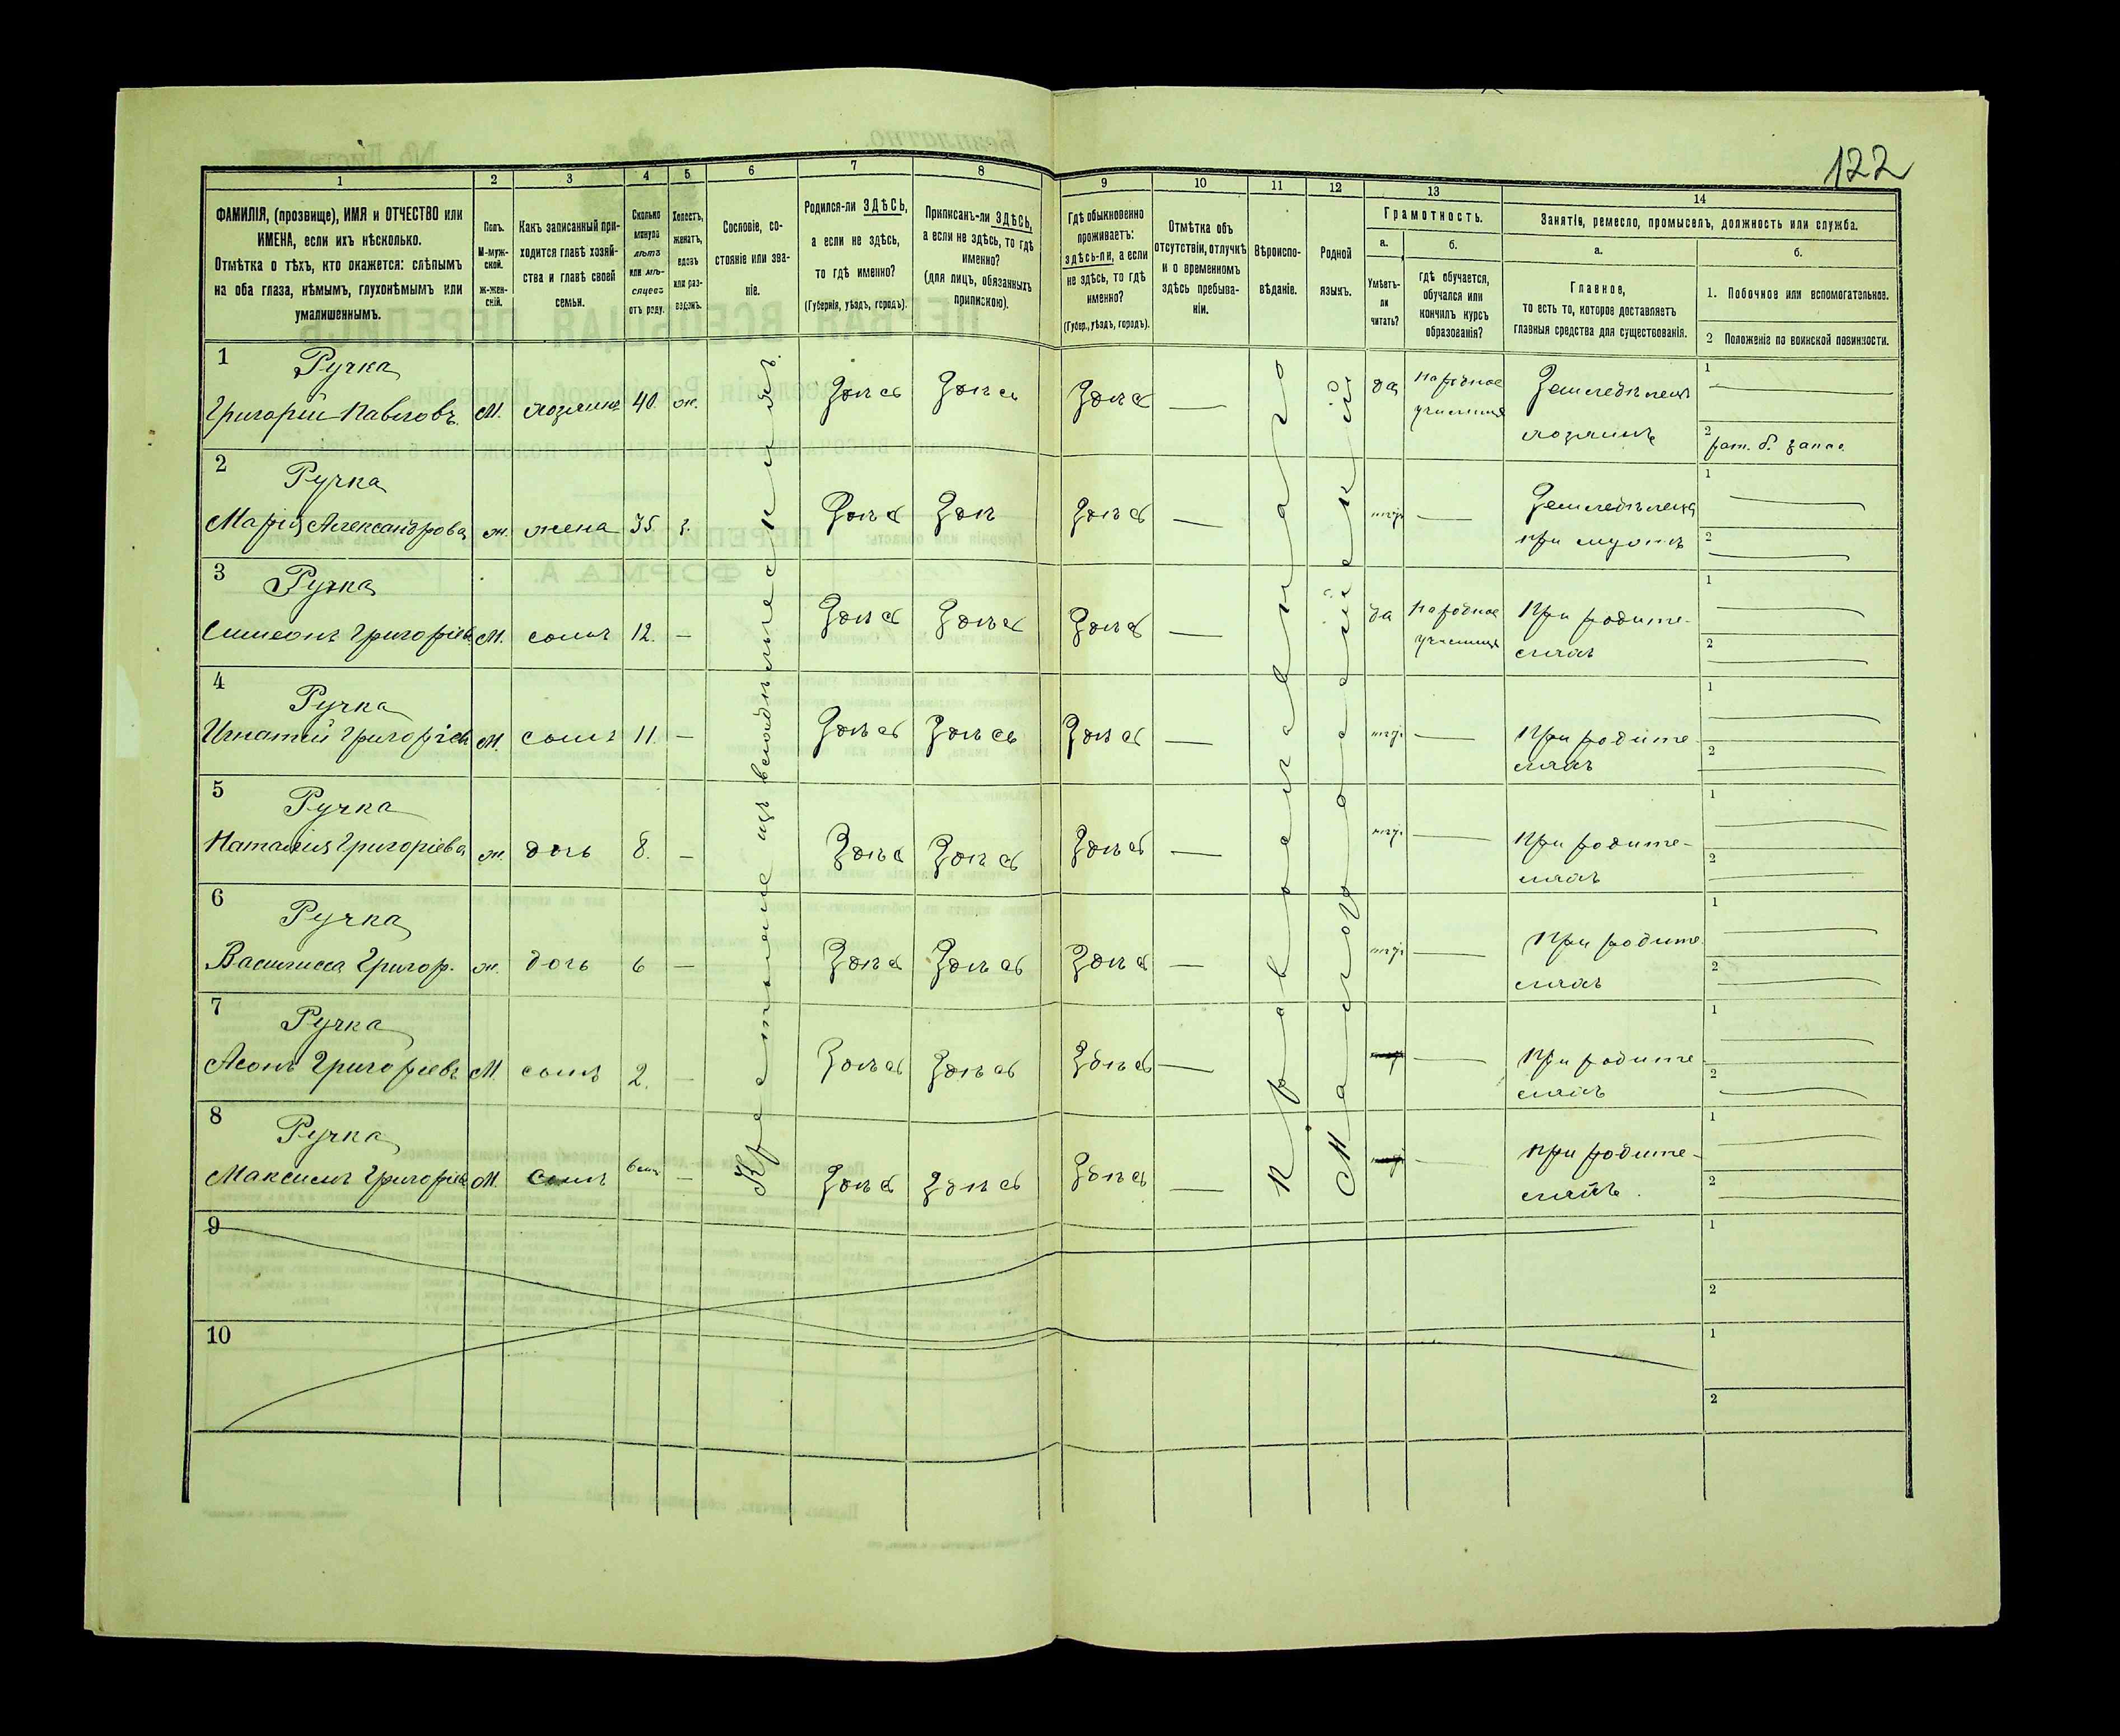 122
1
2
3
4
5
6
7
8
9
10
11
12
13
14
ФАМИЛІЯ, (прозвище), ИМЯ и ОТЧЕСТВО или
ИМЕНА, если ихъ нѣсколько.
Отмѣтка о тѣхъ, кто окажется: слѣпымъ
на оба глаза, нѣмымъ, глухонѣмымъ или
умалишеннымъ.
Полъ.
М-муж-
ской.
ж-жен-
скій.
Какъ записанный при-
ходится главѣ хозяй-
ства и главѣ своей
семьи.
Сколько
минуло
лѣтъ
или мѣ-
сяцевъ
отъ роду.
Холостъ,
женатъ,
вдовъ
или раз-
веденъ.
Сословіе, со-
стояніе или зва-
ніе.
Родился-ли ЗДѢСЬ,
а если не здѣсь,
то гдѣ именно?
(Губернія, уѣздъ, городъ).
Приписанъ-ли ЗДѢСЬ,
а если не здѣсь, то гдѣ
именно?
(для лицъ, обязанныхъ
припискою).
Гдѣ обыкновенно
проживаетъ:
здѣсь-ли, а если
не здѣсь, то гдѣ
именно?
(Губер., уѣздъ, городъ).
Отмѣтка объ
отсутствіи, отлучкѣ
и о временномъ
здѣсь пребыва-
ніи.
Вѣроиспо-
вѣданіе.
Родной
языкъ.
Грамотность.
а.
Умѣетъ-
ли
читать?
б.
гдѣ обучается,
обучался или
кончилъ курсъ
образованія?
Занятія, ремесло, промыселъ, должность или служба.
а.
Главное,
то есть то, которое доставляетъ
главныя средства для существованія.
б.
1. Побочное или вспомогательное.
2 Положеніе по воинской повинности.
Крестьяне изъ владѣльческихъ
Православнаго
Малороссійскій
1 Ручка
Григорій Павловъ. М. хозяинъ 40. ж. Здѣсь Здѣсь Здѣсь — да народное училище Земледѣлецъ хозяинъ 1 — 2 рат. б. запас.
2 Ручка
Марія Александрова ж. жена 35 з. Здѣсь Здѣсь Здѣсь — нѣтъ — Земледѣлецъ при мужѣ 1 — 2 —
3 Ручка
Симеонъ Григоріевъ М. сынъ 12. — Здѣсь Здѣсь Здѣсь — да Народное училище При родителяхъ 1 — 2 —
4 Ручка
Игнатій Григоріевъ М. сынъ 11. — Здѣсь Здѣсь Здѣсь — нѣтъ — При родителяхъ 1 — 2 —
5 Ручка
Наталія Григоріева ж. дочь 8. — Здѣсь Здѣсь Здѣсь — нѣтъ — При родителяхъ 1 — 2 —
6 Ручка
Василисса Григор. ж. дочь 6 — Здѣсь Здѣсь Здѣсь — нѣтъ — При родителяхъ 1 — 2 —
7 Ручка
Григоріевъ М. сынъ 2. — Здѣсь Здѣсь Здѣсь — — При родителяхъ 1 — 2 —
8 Ручка
Максимъ Григоріевъ М. сынъ — Здѣсь Здѣсь Здѣсь — — При родителяхъ. 1 — 2 —
9 1
2
10 1
2